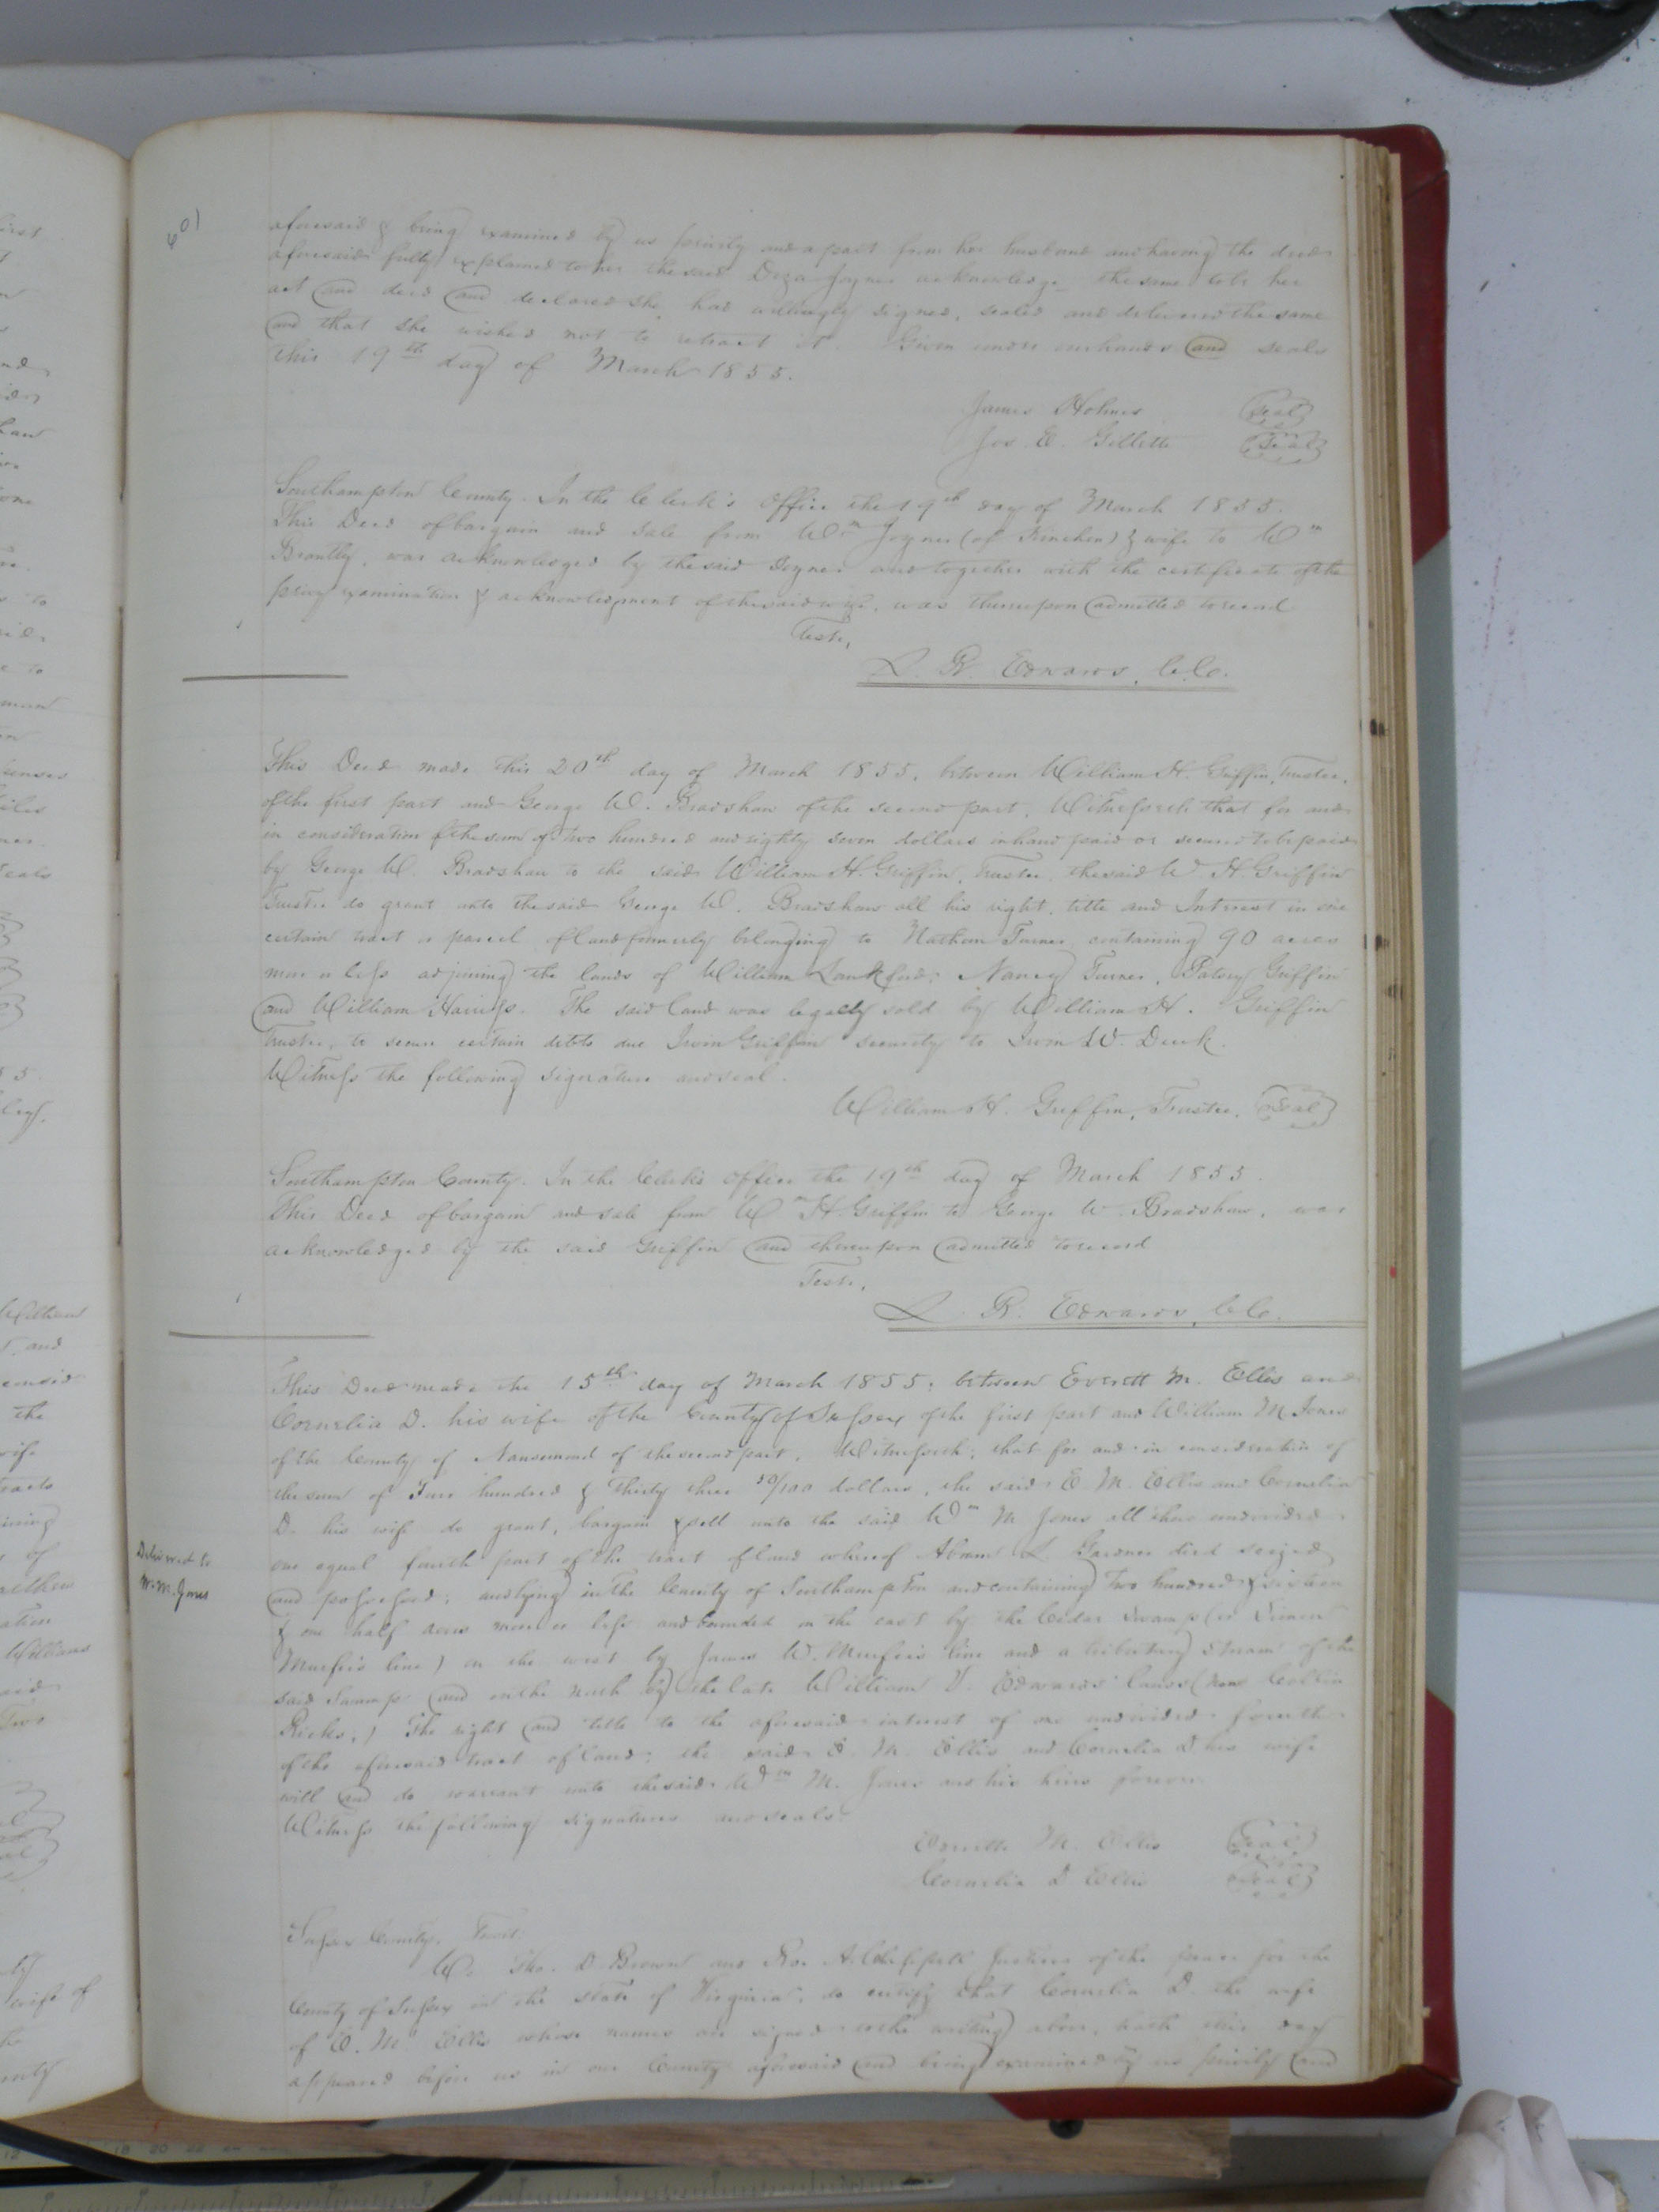 601
aforesaid & being examined by us privily and apart from her husband and having the deed
aforesaid fully explained to her the said Diza Joyner acknowledge the same to be her
act and deed and declared she had willingly signed, sealed and delivered the same
and that she wished not to retract it. Given under our hands and seals
this 19th day of March 1855.
James Holmes Seal
Jos. E. Gillette Seal
Southampton County. In the Clerk's Office the 19th day of March 1855.
This Deed of bargain and sale from Wm Joyner (of Kinchen) & wife to Wm
Brantly, was acknowledged by the said Joyner and together with the certificate of the
privy examination & acknowledgment of the said wife, was thereupon admitted to record
Teste,
L. R. Edwards, C.C.
This Deed made this 20th day of March 1855, between William H. Griffin, Trustee,
of the first part and George W. Bradshaw of the second part, Witnesseth that for and
in consideration of the sum of two hundred and eighty seven dollars in hand paid or secured to be paid
by George W. Bradshaw to the said William H. Griffin, Trustee, the said W. H. Griffin
Trustee do grant unto the said George W. Bradshaw all his right, title and Interest in one
certain tract or parcel of land formerly belonging to Nathan Turner containing 90 acres
more or less adjoining the lands of William Lankford, Nancy Turner, Griffin
and William Harriss. The said land was legally sold by William H. Griffin
Trustee, to secure certain debts due Irvin Griffin security to Irvin W. Duck.
Witness the following signature and seal.
William H. Griffin, Trustee. Seal
Southampton County. In the Clerk's Office the 19th day of March 1855.
This Deed of bargain and sale from Wm H. Griffin to George W. Bradshaw, was
acknowledged by the said Griffin and thereupon admitted to record
Teste,
L. R. Edwards, C.C.
This Deed made the 15th day of March 1855; between Everett M. Ellis and
Cornelia D. his wife of the County of Sussex of the first part and William M Jones
of the County of Nansemond of the second part, Witnesseth; that for and in consideration of
the sum of hundred & Thirty three 50/100 dollars, the said E. M. Ellis and Cornelia
D. his wife do grant, bargain & sell unto the said Wm M Jones all their undivided
Delivered to
W. M. Jones
one equal fourth part of the tract of land whereof Abram L Gardner died seized
and possessed; and lying in the County of Southampton and containing Two hundred & sixteen
& one half acres more or less and bounded on the east by the Cedar Swamp (or Simon
Murfee's line) on the west by James W. Murfee's line and a tributary stream of the
said Swamp and on the north by the late William Edwards' lands (now Collin
Ricks.) The right and title to the aforesaid interest of one undivided fourth
of the aforesaid tract of land; the said E. M. Ellis and Cornelia D his wife
will and do warrant unto the said Wm M. Jones and his heirs forever.
Witness the following signatures and seals.
Everette M. Ellis Seal
Cornelia D Ellis Seal
Sussex County. Towit:
We Tho. D. Brown and Ro. A. Justices of the peace for the
County of Sussex in the state of Virginia; do certify that Cornelia D. the wife
of E. M. Ellis whose names are signed to the writing above, hath this day
appeared before us in our County aforesaid and being examined by us privily and